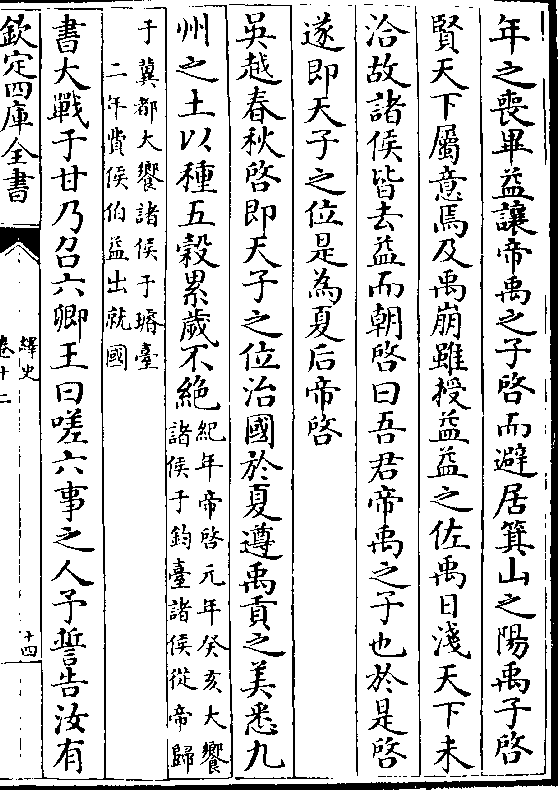 年之喪畢益讓帝禹之子啓而避居箕山之陽禹子啓
賢天下屬意焉及禹崩雖授益益之佐禹日淺天下未
洽故諸侯皆去益而朝啓曰吾君帝禹之子也於是啓
遂即天子之位是為夏后帝啓
吳越春秋啓即天子之位治國於夏遵禹貢之美悉九
州之土以種五穀累歲不絶
紀年帝啓元年癸亥大饗
諸侯于鈞臺諸侯從帝歸
于冀都大饗諸侯于璿臺
二年費侯伯益出就國
書大戰于甘乃召六卿王曰嗟六事之人予誓告汝有
欽定四庫全書
繹史
卷十二
十四